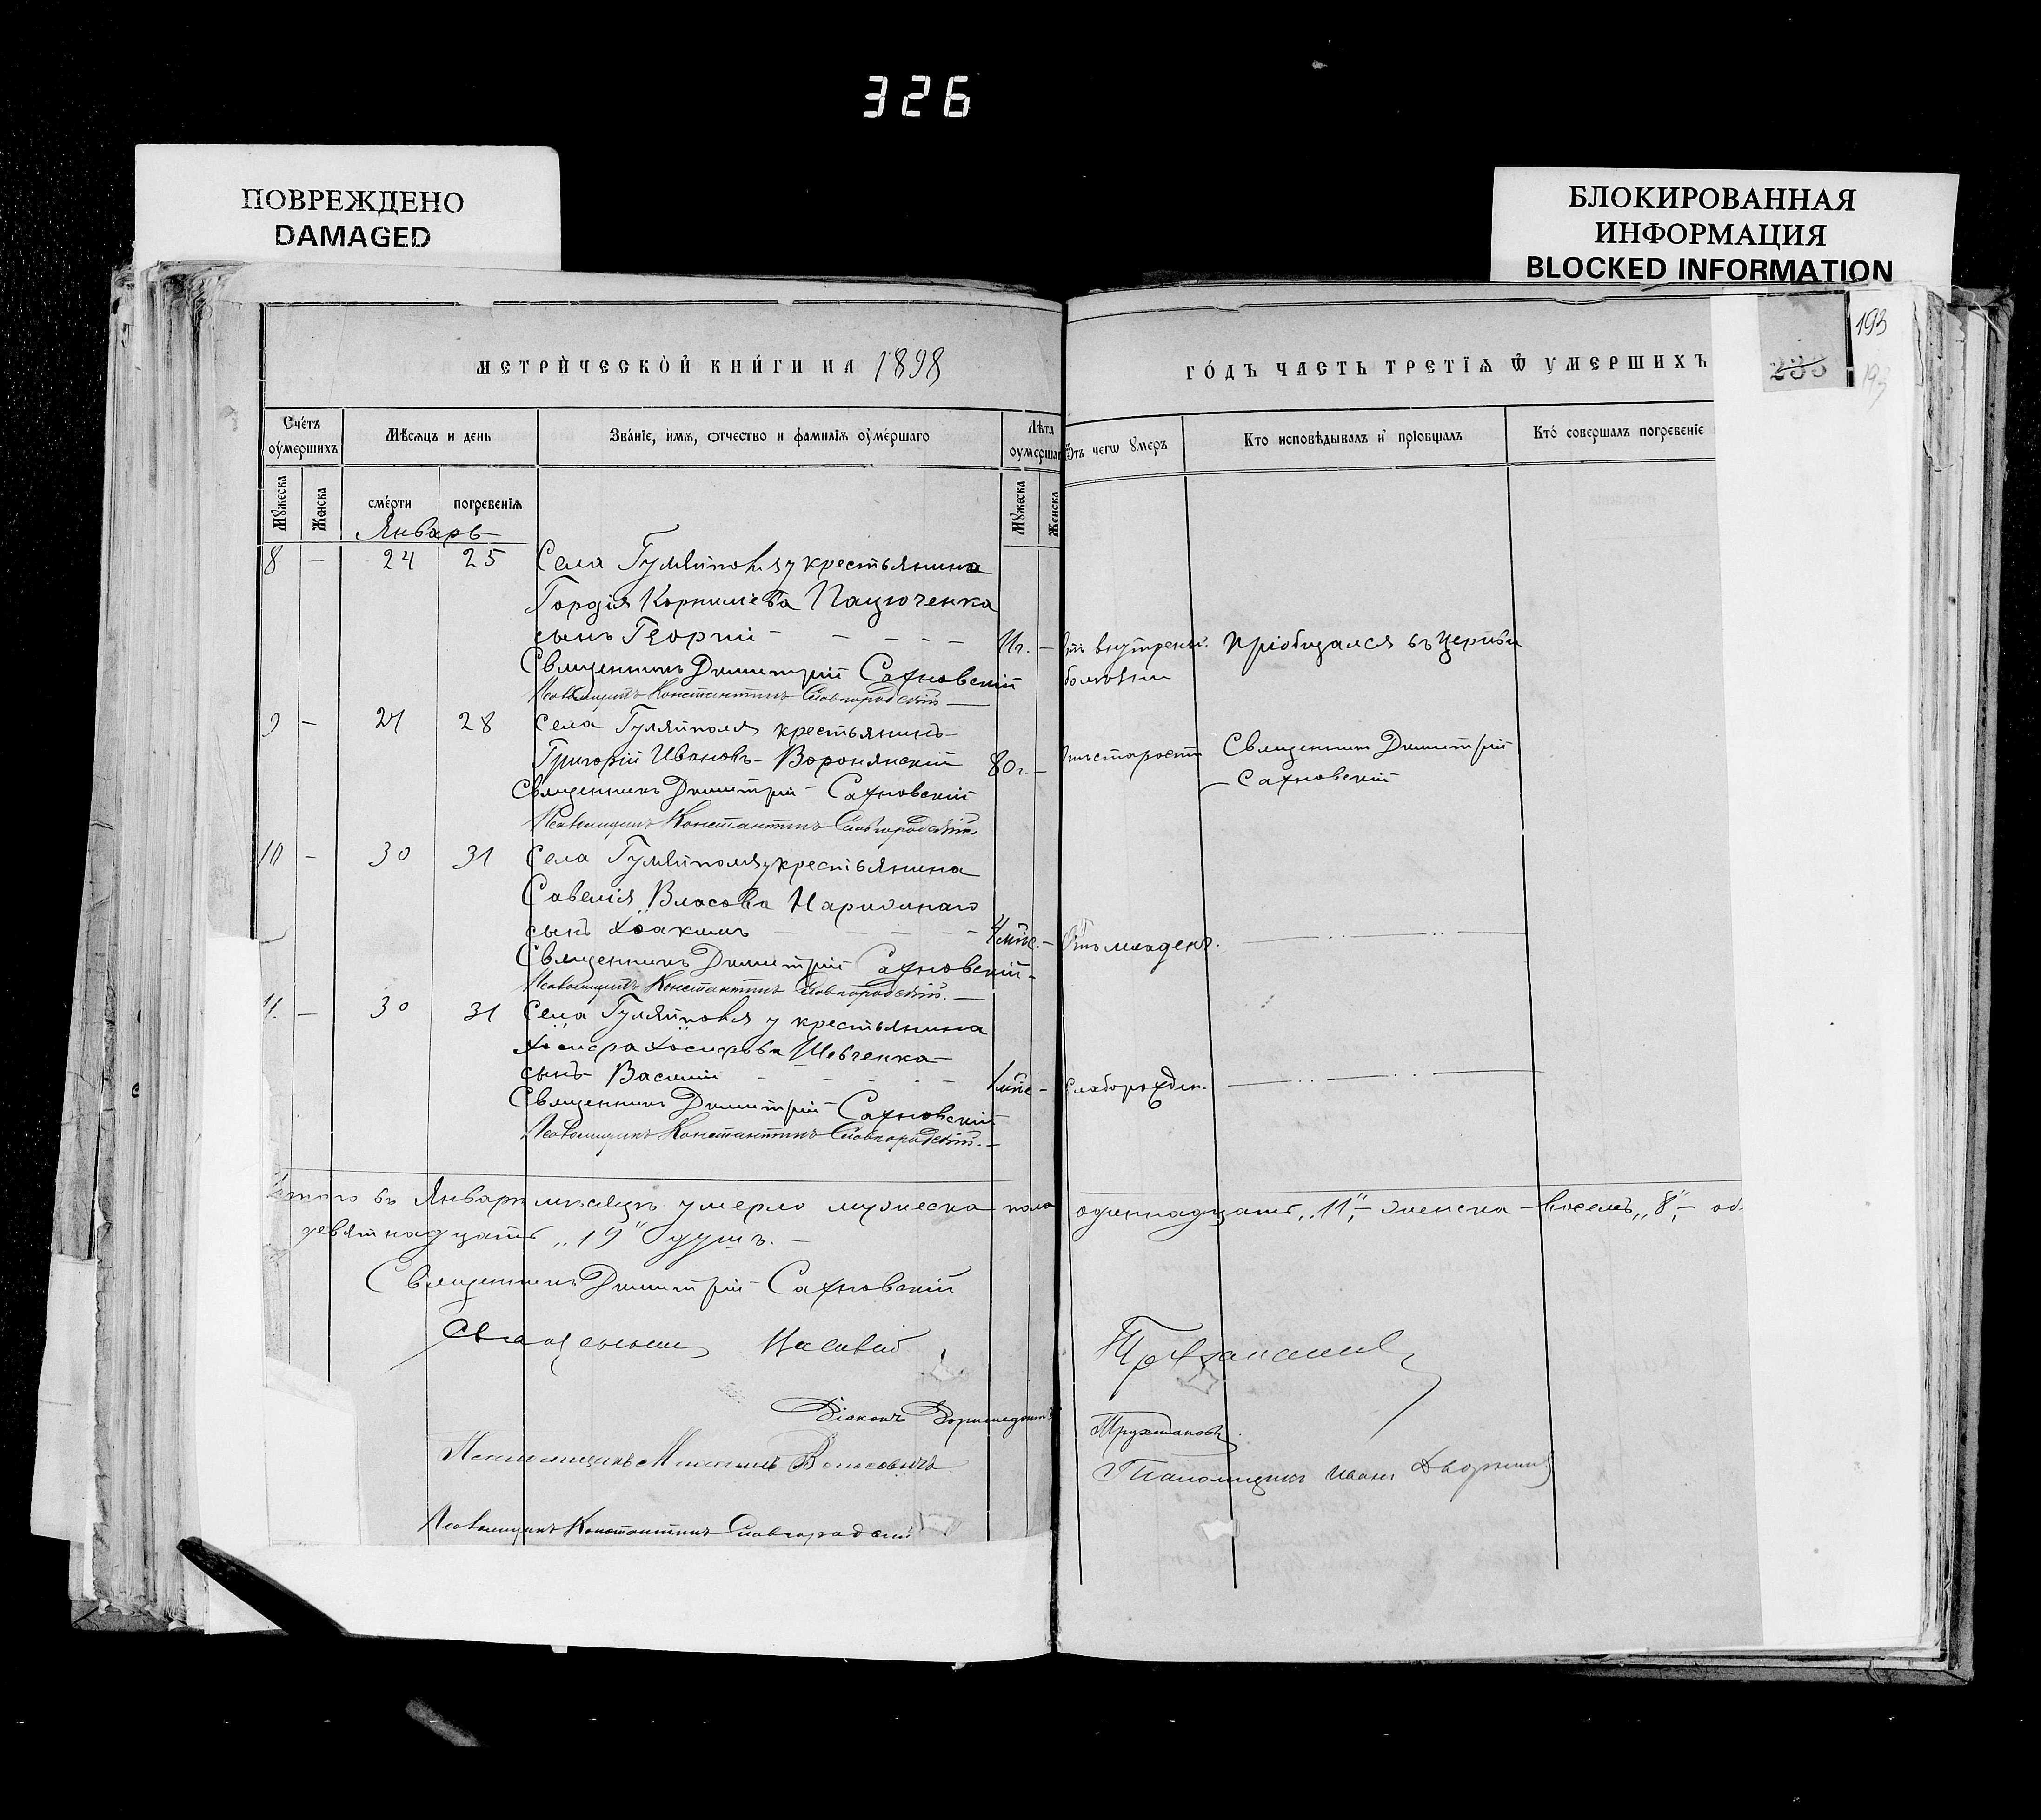 326
ПОВРЕЖДЕНО
DAMAGED
БЛОКИРОВАННАЯ
ИНФОРМАЦИЯ
BLOCKED INFORMATION
193
235
193
МЕТРИЧЕСКОЙ КНИГИ НА 1898
ГОДЪ ЧАСТЬ ТРЕТІѦ Ѿ УМЕРШИХЪ
Счетъ оумершихъ
Мѣсяцъ и день
Званіе, имѧ, отчество и фамиліѧ оумершаго
Лѣта оумершаг
Ѿтъ чегѡ умеръ
Кто исповѣдывалъ и пріобщалъ
Кто совершалъ погребеніе
Мужеска
Женска
смерти
погребеніѧ
Мужеска
Женска
Январь
8 — 24 25 Села Гуляйполя у крестьянина
Гордія Корнилева Пацюченка
сынъ Георгій — 11г. — отъ внутрен. Пріобщался въ церкви
Священникъ Димитрій Сахновскій болѣзни
Псаломщикъ Константинъ Славгородскій
9 — 27 28 Села Гуляйполя крестьянинъ
Григорій Ивановъ Воронянскій 80г. — Отъ старости Священникъ Димитрій
Священникъ Димитрій Сахновскій Сахновскій
Псаломщикъ Константинъ Славгородскій
10 — 30 31 Села Гуляйполя у крестьянина
Савелія Власова
сынъ Іоакимъ — 4 мѣс. — Отъ младенч.
Священникъ Димитрій Сахновскій
Псаломщикъ Константинъ Славгородскій
11. — 30 31 Села Гуляйполя у крестьянина
Іосифа Іосифова Шевченка
сынъ Василій — 1 мѣс — Слаборожден.
Священникъ Димитрій Сахновскій
Псаломщикъ Константинъ Славгородскій
Итого въ Январѣ мѣсяцѣ умерло мужеска пола одиннадцать „11", женска — восемь „8", — об.
девятнадцать „19" душъ. —
Священникъ Димитрій Сахновскій
Священникъ
Діаконъ
Труханов
Псаломщикъ Михаилъ Власовичъ
Псаломщикъ Иванъ
Псаломщикъ Константинъ Славгородскій